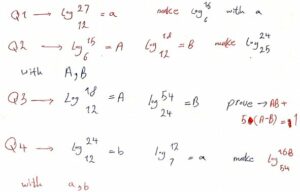 Q1 → log₁₂²⁷ = a make log₆¹⁶ with a
Q2 → log₆¹⁵ = A log₁₂¹⁸ = B make log₂₅²⁴
with A,B
Q3 → log₁₂¹⁸ = A log₂₄⁵⁴ = B prove → AB +
5(A-B) = 1
Q4 → log₁₂²⁴ = b log₇¹² = a make log₅₄¹⁶⁸
with a,b